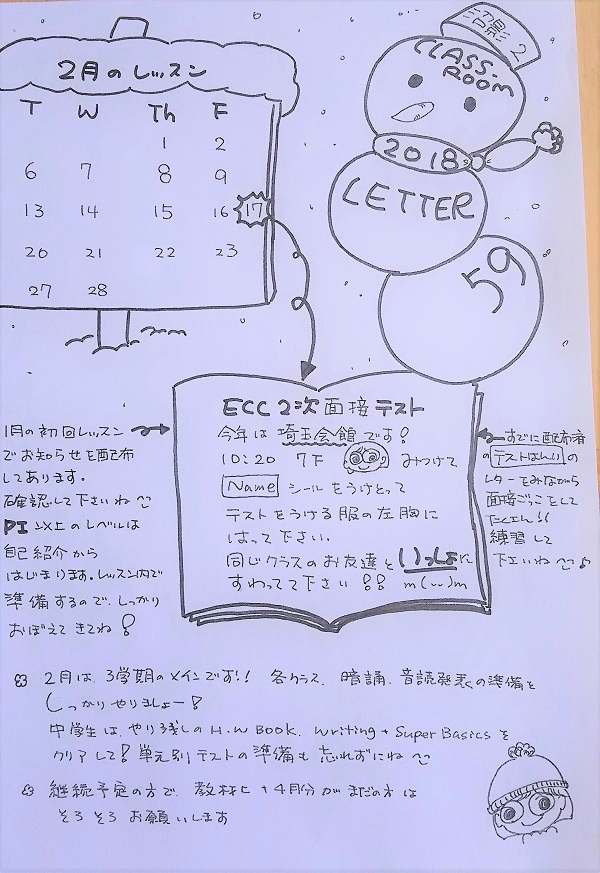 2月のレッスン
T W Th F
1 2
6 7 8 9
13 14 15 16 17
20 21 22 23
27 28
2
CLASS-
ROOM
2018
LETTER
59
ECC 2次 面接 テスト
今年は 埼玉会館 です!
10:20 7F みつけて
Name シールをうけとって
テストをうける服の左胸に
はって下さい.
同じクラスのお友達と いっしょに
すわってて下さい!! m(uu)m
1月の初回レッスン
でお知らせを配布
してあります。
確認して下さいね
PI 以上のレベルは
自己紹介から
はじまります。レッスン内で
準備するので、しっかり
おぼえてきてね!
すでに配布済
の テストはんい の
レターをみながら
面接ごっこをして
たくさん!!
練習して
下さいね♪
2月は、3学期のメインです!! 各クラス、暗誦、音読発表の準備を
しっかりやりましょー!
中学生は、やり残しのH.W Book. Writing + Super Basics を
クリアして! 単元別テストの準備も忘れずにね
継続予定の方で、教材ヒ + 4月分がまだの方は
そろそろお願いします